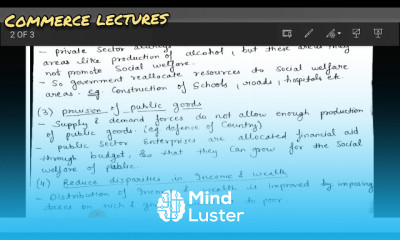 COMMERCE LECTURES
2 OF 3
- private sector always
areas like production of alcohol, but these areas may
not promote Social welfare.
- So government reallocate resources to Social welfare
areas. eg Construction of Schools, roads, hospitals etc.
(3) provision of public goods
- Supply & demand forces do not allow enough production
of public goods. (eg defence of Country)
- public Sector Enterprises are allocated financial aid
through budget, so that they can grow for the Social
welfare of public.
(4) Reduce disparities in Income & wealth
- Distribution of Income & wealth is improved by imposing
taxes on rich & to poor
Mind
Luster